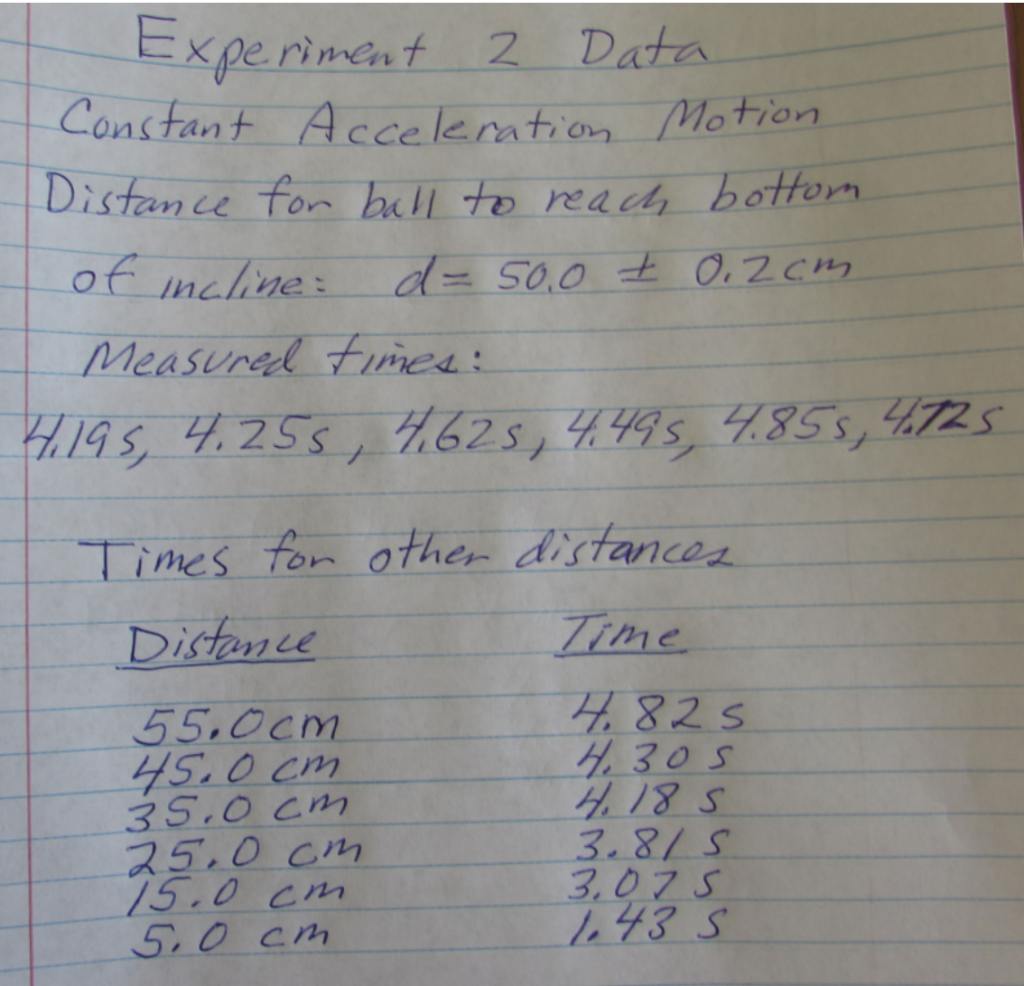 Experiment 2 Data
Constant Acceleration Motion
Distance for ball to reach bottom
of incline: d= 50.0 ± 0.2cm
Measured times:
4.19s, 4.25s, 4.62s, 4.49s, 4.85s, 4.72s
Times for other distances
Distance Time
55.0cm 4.82 s
45.0 cm 4.30 s
35.0 cm 4.18 s
25.0 cm 3.81 s
15.0 cm 3.07 s
5.0 cm 1.43 s